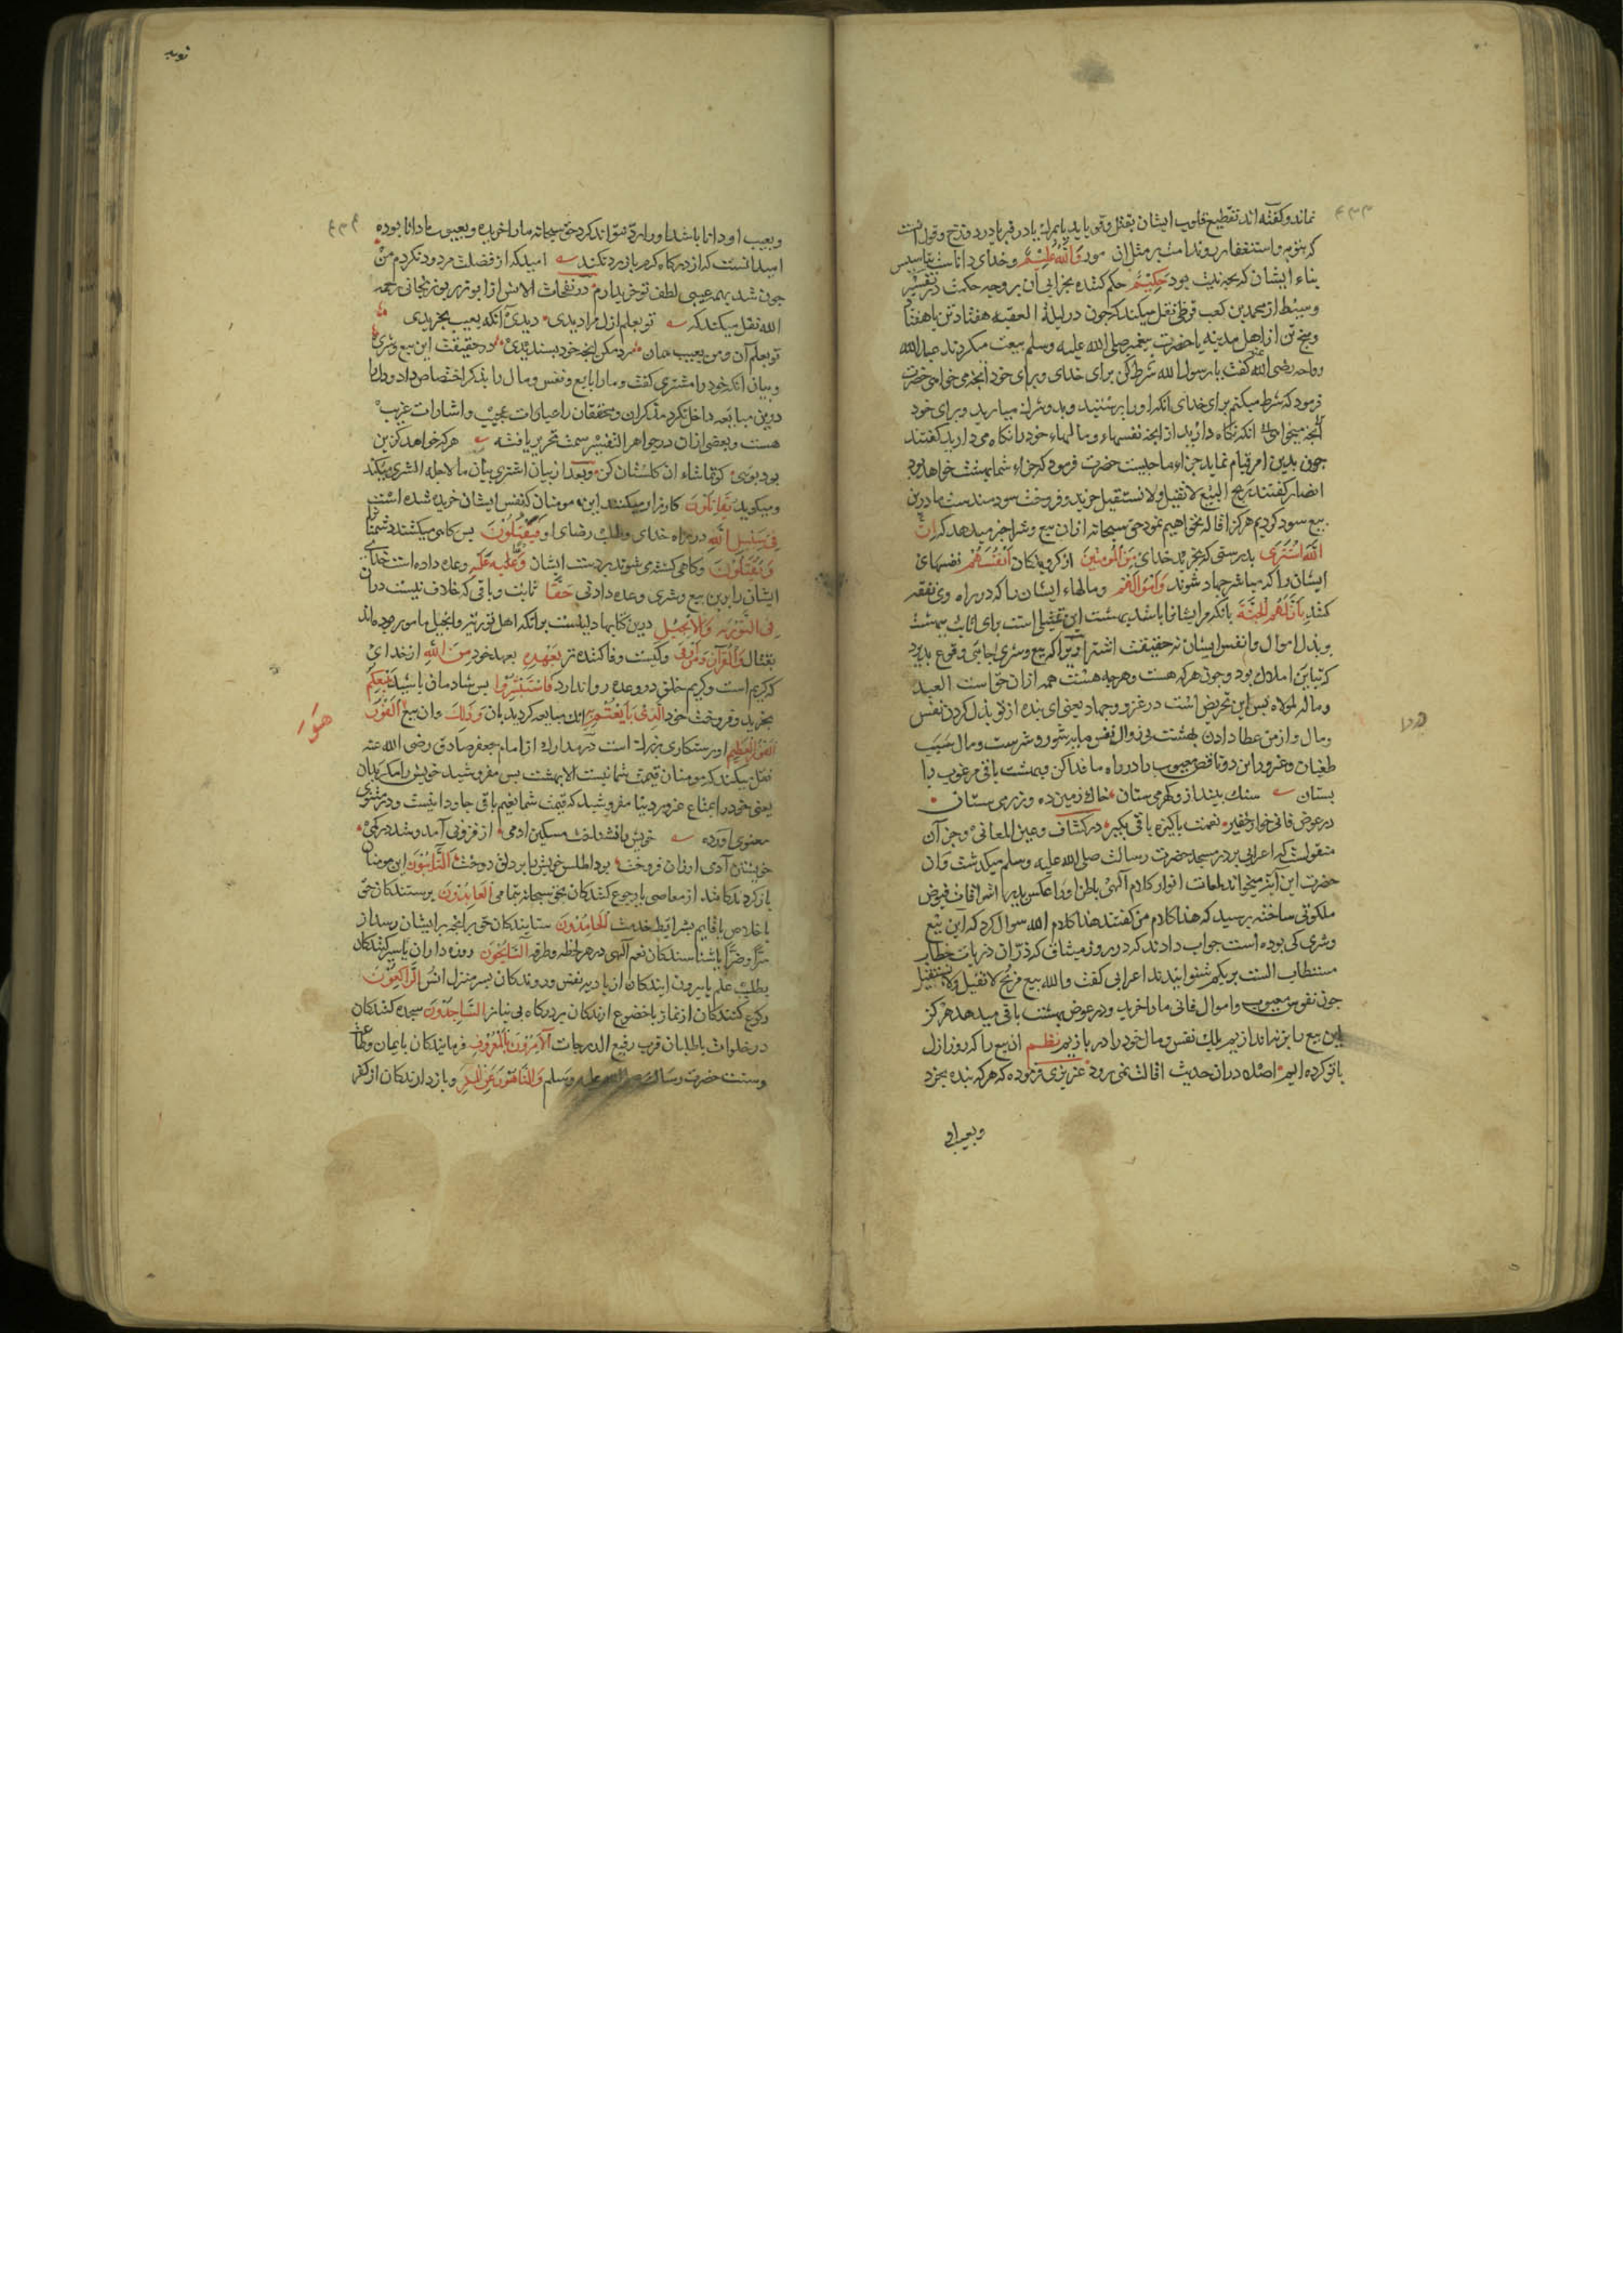 ۴۳۳
نماند و کفته اند تقطیع قلوب ایشان بقتل
که بتوبه و استغفار
وَاللّٰهُ عَلِیْمٌ و خدای داناست بتاسیس
بناء ایشان که بچه نیت بود حَکِیْمٌ حکم کننده بجزای آن بر وجه حکمت در تفسیر
و سیط از محمد بن کعب قرظی نقل میکند که چون در لیلة العقبه هفتاد تن یا هفتاد
و پنج تن از اهل مدینه با حضرت پیغمبر صلی الله علیه و سلم بیعت میکردند عبد الله
رواحه رضی الله عنه کفت یا رسول الله شرط کن برای خدای و برای خود آنچه می خواهی حضرت
فرمود که شرط میکنم برای خدای انکه او را بپرستید و بدو شرک میارید و برای خود
انکه نکاه دارید از انچه نفسهاء و مالهاء خود را نکاه می دارید کفتند
چون بدین امر قیام نماید جزاء ما چیست حضرت فرمود که جزاء شما بهشت خواهد بود
انصار کفتند ربح البیع لا نقیل و لا نستقیل خرید و فروخت سودمند ست ما درین
بیع سود کردیم هرکز اقاله نخواهیم نمود حق سبحانه ازان بیع و شرا خبر میدهد که اِنَّ
اللّٰهَ اشْتَرٰی بدرستی که بخرید خدای مِنَ الْمُوْمِنِیْنَ از کرویدکان اَنْفُسَهُمْ نفسهای
ایشان را که مباشر جهاد شوند وَاَمْوَالَهُمْ و مالهاء ایشان را که در راه وی نفقه
کنند بِاَنَّ لَهُمُ الْجَنَّةَ بانکه مر ایشانرا باشد بهشت این تمثیلی است برای اثابت بهشت
بر بذل اموال و انفس ایشان نه حقیقت اشترا
و چون هرکه هست و هرچه هست همه ازان حق است العبد
و ماله لمولاه پس این تحریض است در غزو و جهاد یعنی ای بنده از تو بذل کردن نفس
و مال و از من عطا دادن بهشت بی زوال نفس مایه شور و شرست و مال سبب
طغیان و غرور این دو ناقص معیوب را در راه ما فدا کن و بهشت باقی مرغوب را
بستان سنک بینداز و کهر می ستان خاک زمین ده و زر می ستان
در عوض فانی خوار حقیر نعمت پاکیزه باقی بکیر در کشاف و عین المعانی و جز آن
منقولست که اعرابی بر در مسجد حضرت رسالت صلی الله علیه و سلم میکذشت و ان
حضرت این آیت میخواند لمعات انوار کلام آلهی باطن او را عکس پذیر اشراقات فیوض
ملکوتی ساخته پرسید که هذا کلام من کفتند هذا کلام الله سوال کرد که این بیع
و شری کی بوده است جواب دادند که در روز میثاق که ذرّات ذریات خطاب
مستطاب الست بربکم شنوانیدند اعرابی کفت والله بیع مربح لا نقیل و لا نستقیل
چون نفوس معیوب و اموال فانی ما را خرید و در عوض بهشت باقی میدهد هرکز
این بیع را بر نیندازیم بلک نفس و مال خود را در بازیم نظم ان بیع را که روز ازل
با تو کرده ایم اصلا دران حدیث اقالت نمی رود عزیزی فرموده که هرکه بنده بخرد
و بعیب او
توبه
۴۳۴
و بعیب او دانا باشد او را رد نتواند کرد حق سبحانه ما را خریده و بعیوب ما دانا بوده
امید انست که از درکاه کرم باز رد نکند امید که از فضلت مردود نکردم من
چون شد بهمه عیبی لطف تو خریدارم در نفحات الانس از ابو زید بوزجانی رحمه
الله نقل میکند که تو بعلم ازل مرا دیدی دیدی آنکه بعیب بخریدی
تو بعلم آن و من بعیب همان رد مکن انچه خود پسندیدی در حقیقت این بیع و شری
و بیان انکه خود را مشتری کفت و ما را بایع و نفس و مال را بذکر اختصاص داد و دل را
درین مبایعه داخل نکرد مذکران و محققان را عبارات عجیب و اشارات غریب
هست و بعضی ازان در جواهر التفسیر سمت تحریر یافته هرکه خواهد کزین
بود بوسی کو تماشاء ان کلستان کن و بعد از بیان اشتری بیان ما لاجله الشری میکند
و میکوید یُقَاتِلُوْنَ کارزار میکنند این مومنان که نفس ایشان خریده شده است
فِیْ سَبِیْلِ اللّٰهِ در راه خدای و طلب رضای او فَیَقْتُلُوْنَ پس کاهی میکشند دشمنان را
وَیُقْتَلُوْنَ و کاهی کشته می شوند بر دست ایشان وَعْدًا عَلَیْهِ وعده داده است خدای
ایشان را برین بیع و شری وعده دادنی حَقًّا ثابت و باقی که خلاف نیست دران
فِی التَّوْرٰیةِ وَالْاِنْجِیْلِ درین کتابها دلیلست برانکه اهل توریة و انجیل مامور بوده اند
بقتال وَالْقُرْاٰنِ وَمَنْ اَوْفٰی و کیست وفا کننده تر بِعَهْدِهٖ بعهد خود مِنَ اللّٰهِ از خدای
که کریم است و کریم خلف در وعده روا ندارد فَاسْتَبْشِرُوْا پس شادمان باشید بِبَیْعِکُمُ
بخرید و فروخت خود الَّذِیْ بَایَعْتُمْ بِهٖ انک مبایعه کردید بان وَذٰلِکَ وان بیع هُوَ الْفَوْزُ
الْعَظِیْمُ او رستکاری بزرک است در مدارک از امام جعفر صادق رضی الله عنه
نقل میکند که مومنان قیمت شما نیست الا بهشت پس مفروشید خویش را مکر بدان
یعنی خود را بمتاع غرور دینا مفروشید که قیمت شما نعیم باقی جاودانیست و در مثنوی
معنوی آورده خویش را نشناخت مسکین ادمی از فزونی آمد و شد در کمی
خویشتن آدمی ارزان فروخت بود اطلس خویش را بر دلق دوخت اَلتَّائِبُوْنَ این مومنان
باز کردندکانند از معاصی یا رجوع کنندکان بحق سبحانه بتمامی الْعَابِدُوْنَ پرستندکان حق
باخلاص یا قایم بشرایط خدمت الْحَامِدُوْنَ ستایندکان حق بر انچه بر ایشان رسد از
سرّا و ضرّا یا شناسندکان نعم آلهی در هر لحظه و طرفه السَّائِحُوْنَ روزه داران یا سیر کنندکان
بطلب علم یا بیرون ایندکان از بادیه نفس و روندکان بسر منزل انس الرَّاکِعُوْنَ
رکوع کنندکان از نماز یا خضوع ارندکان بر درکاه بی نیاز السَّاجِدُوْنَ سجده کنندکان
در خلوات یا طلبان قرب رفیع الدرجات اَلْاٰمِرُوْنَ بِالْمَعْرُوْفِ فرمایندکان بایمان و طاعت
و سنت حضرت رسالت صلی الله علیه وسلم وَالنَّاهُوْنَ عَنِ الْمُنْکَرِ و بازدارندکان از کفر